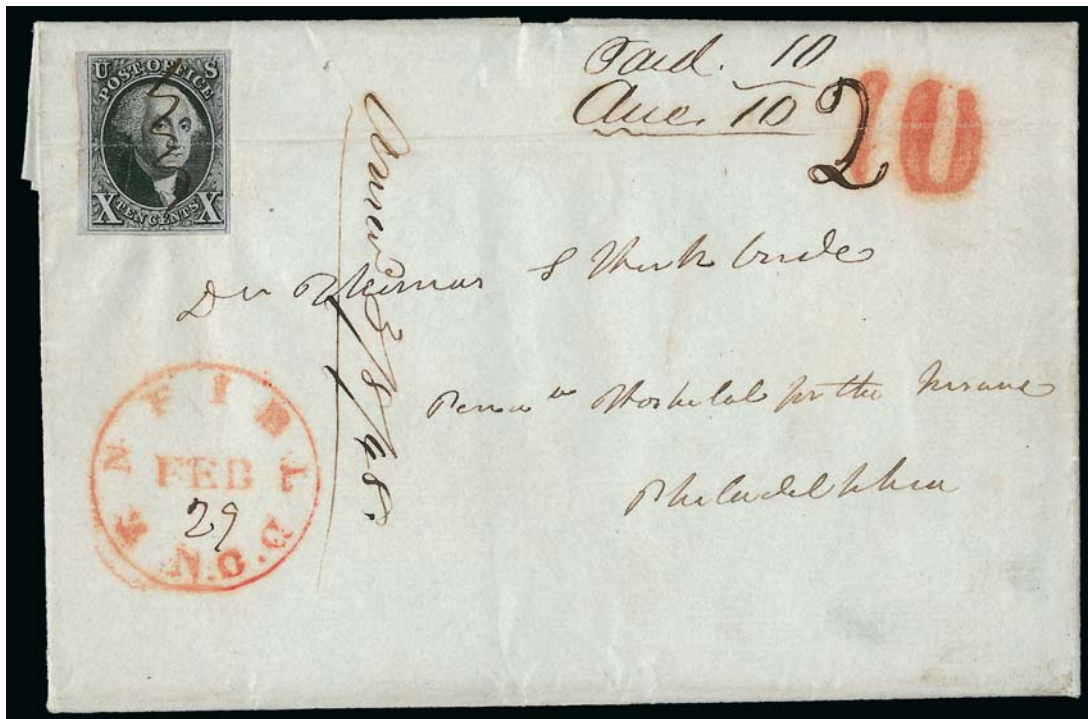 U S
POST OFFICE
X TEN CENTS X
Paid. 10
10
2
10
Dr Thomas S Kirkbride
Penna Hospital for the Insane
Philadelphia
ENFIELD
FEB
29
N.C.